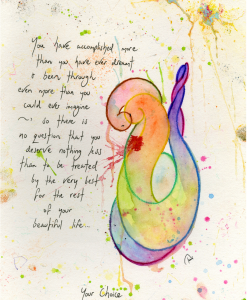 You have accomplished more
than you have ever dreamt
& been through
even more than you
could ever imagine
~ so there is
no question that you
deserve nothing less
than to be treated
by the very best
for the rest
of your
beautiful life...
Your Choice